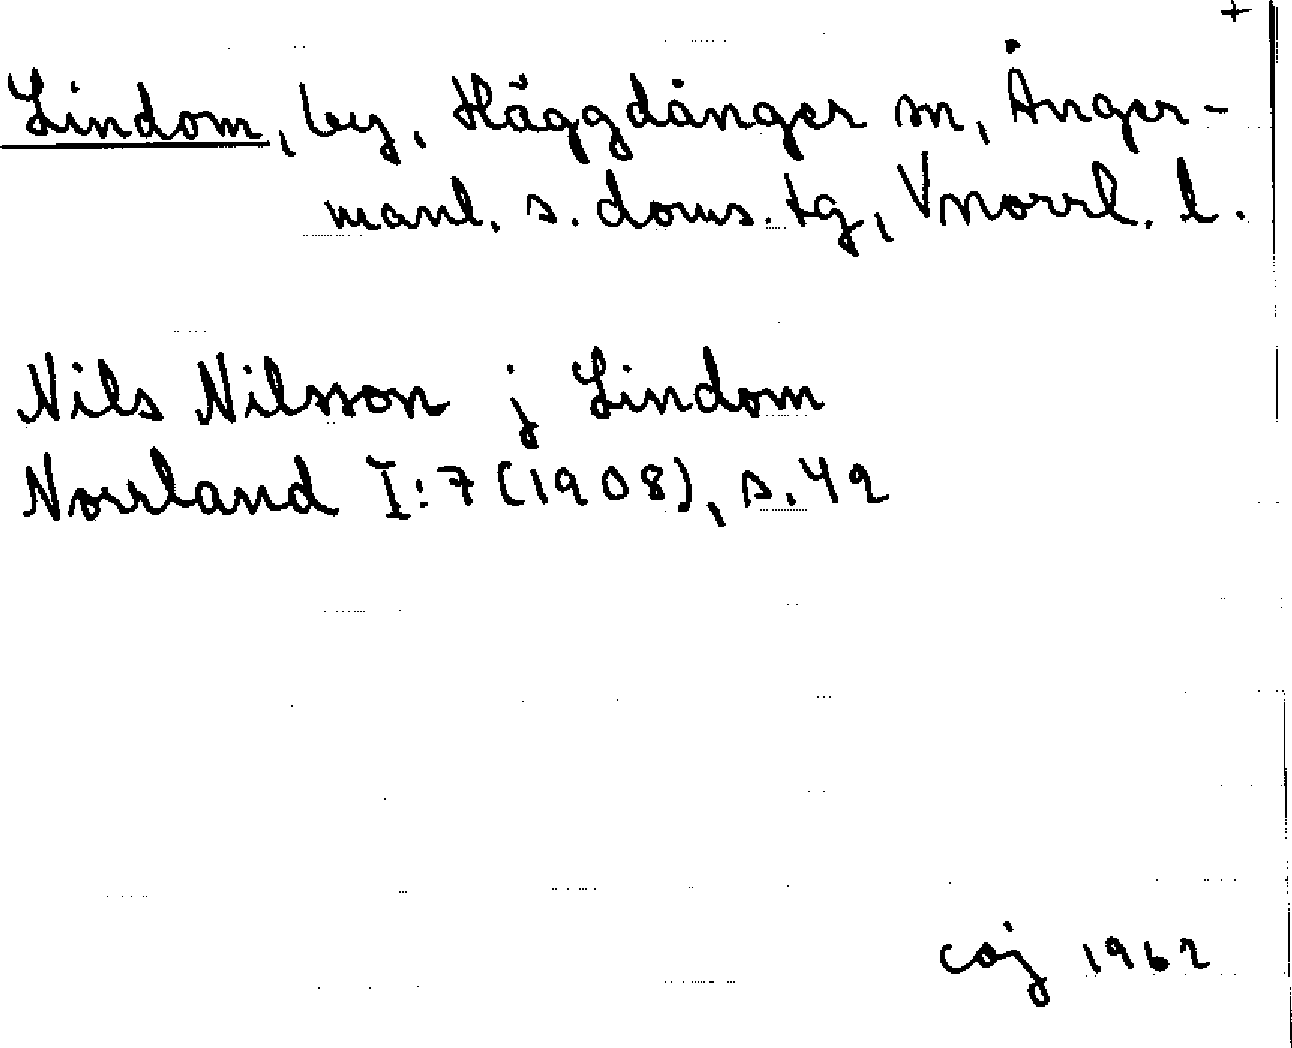 +
Lindom, by, Häggdånger sn, Ånger-
manl. s. doms. tg, Vnorrl. l.
Nils Nilsson j Lindom
Norrland I:7 (1908), s. 42
caj 1962